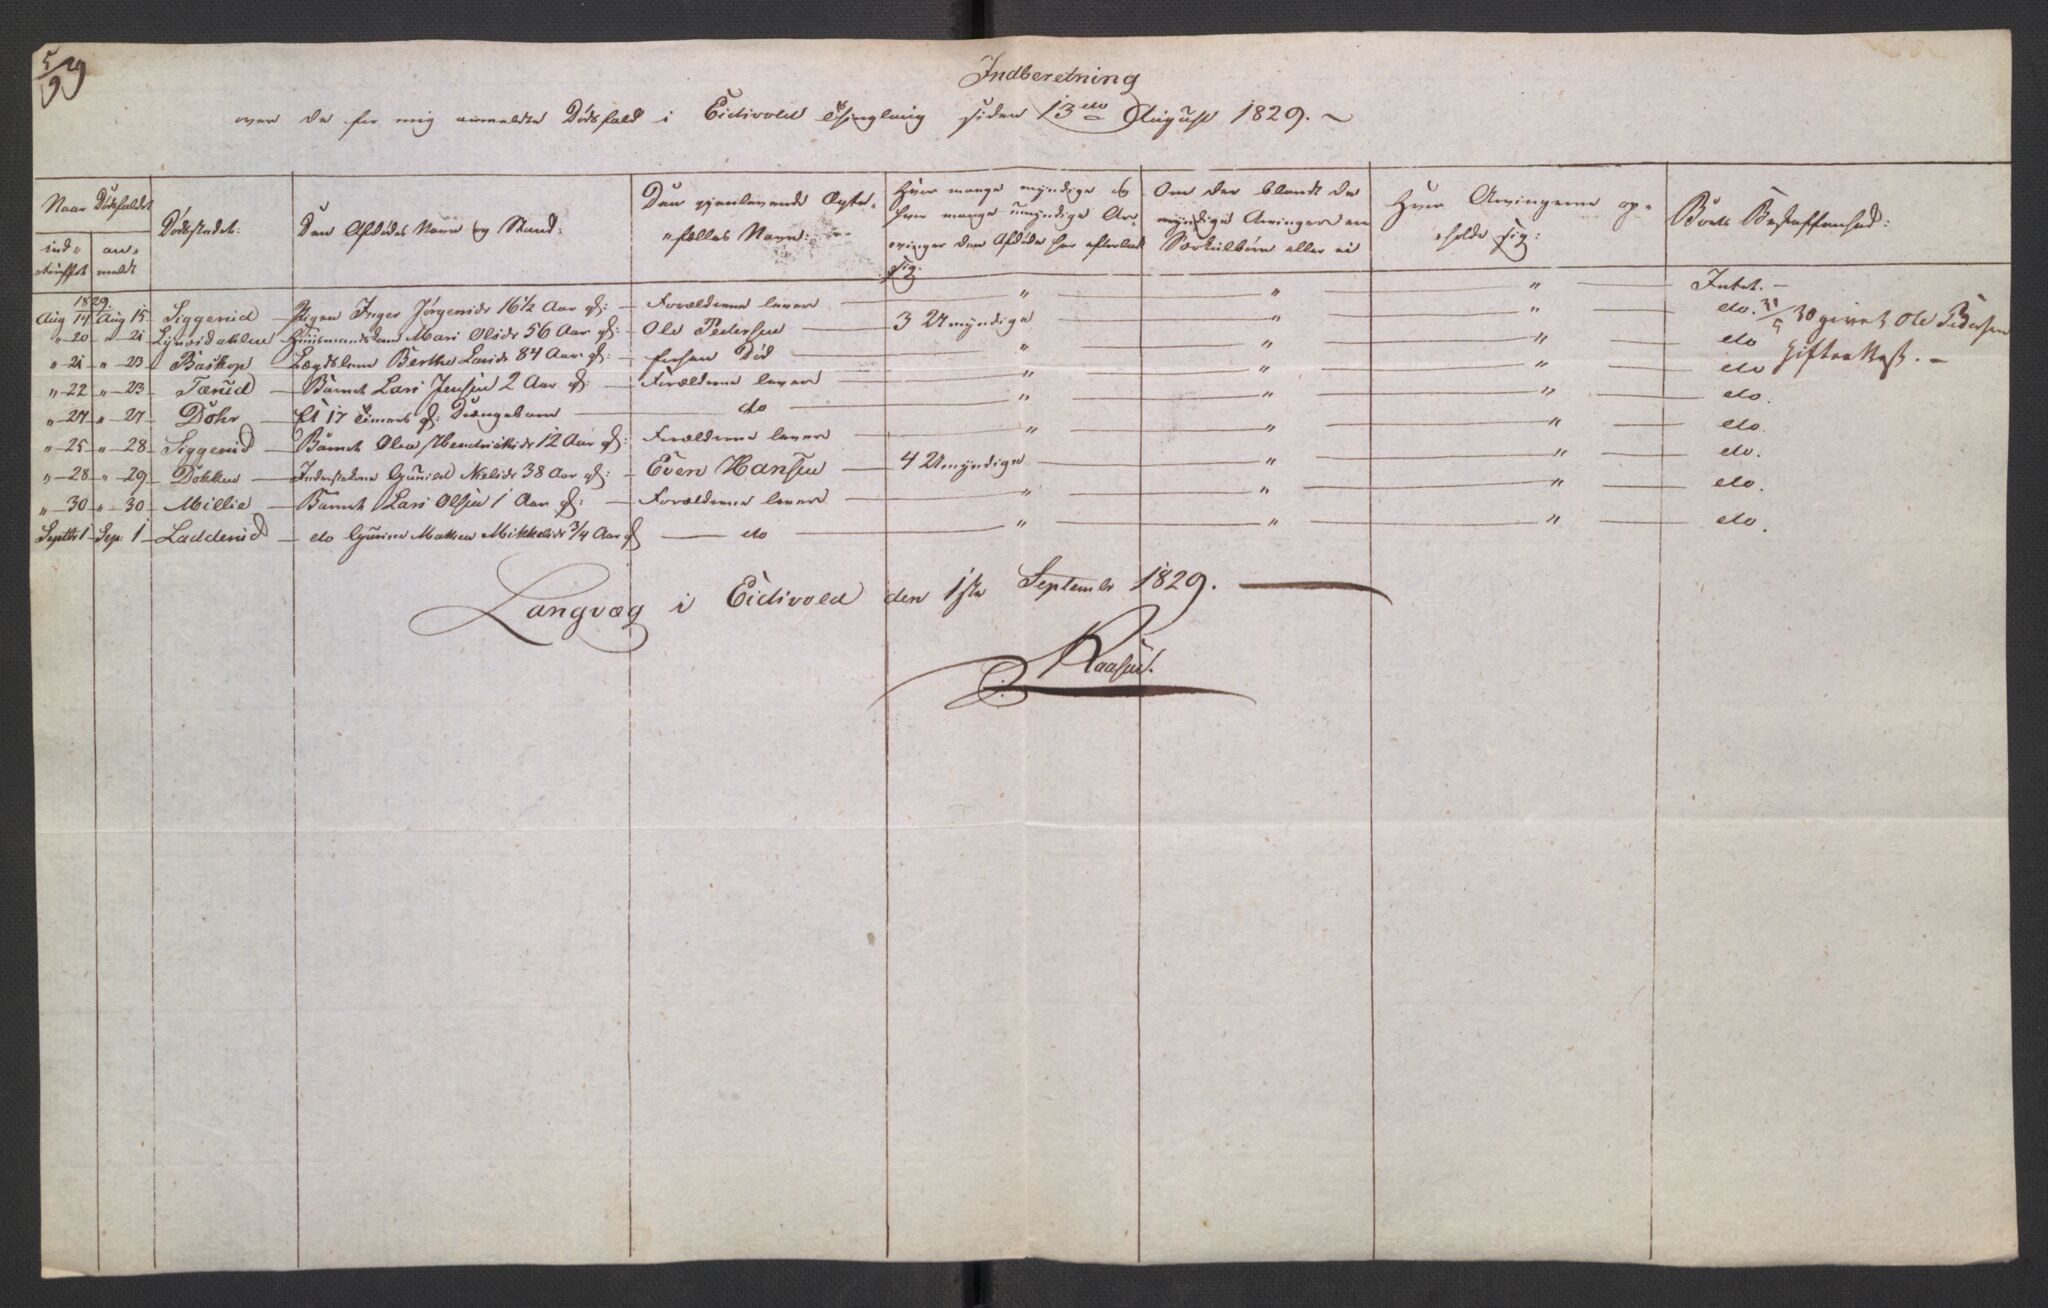 5/9 29
Indberetning
over de for mig anmeldte Dödsfald i Eidsvold Thinglaug siden 13de August 1829. ~
Naar Dödsfaldet
ind- træffet
an- meldt
Dödsstedet:
Den Afdödes Navn og Stand:
Den gjenlevende Ægte- fælles Navn:
Hvor mange myndige og hvor mange umyndige Ar- vinger den Afdöde har efterladt sig.
Om der blandt de myndige Arvinger er Særkulbörn eller ei
Hvor Arvingerne op- holde sig:
Boets Beskaffenhed:
1829.
Aug 14 Aug 15 Siggerud Pigen Inger Jörgensdr 16 1/2 Aar gl: Forældrene lever " " " Intet. -
" 20 " 21 Lynsdahlen Huusmandskone Mari Olsdr 56 Aar gl: Ole Pedersen 3 Umyndige " " do. 31/5 30 givet Ole Pedersen
" 21 " 23 Baskop Lægdslem Berthe Larsdr 84 Aar gl: forhen Död " " " do Gifte Attest. -
" 22 " 23 Tærud Barnet Lars Jensen 2 Aar gl: Forældrene lever " " " do
" 27 " 27 Dohr Et 17 Timers gl: Drengebarn do " " " do.
" 25 " 28 Siggerud Barnet Olea Hendriksdr 12 Aar gl: Forældrene lever " " " do.
" 28 " 29 Dokken Inderstekone Gunild Nelsdr 38 Aar gl: Even Hansen 4 Umyndige " " do.
" 30 " 30 Millie Barnet Lars Olsen 1 Aar gl: Forældrene lever " " " do.
Septbr 1 Sep: 1 Ladderud do Gurine Mathea Mikkelsdr 3/4 Aar gl do " " " do.
Langvæg i Eidsvold den 1ste September 1829.
Kaasen.